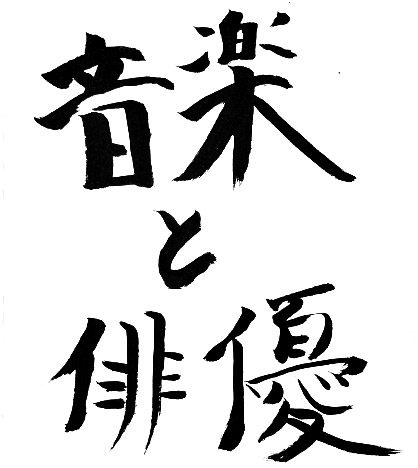 音楽
と
俳優